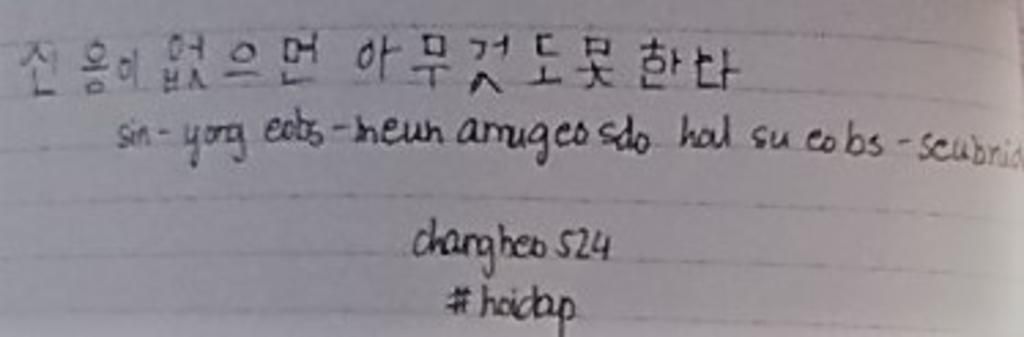 신용이 없으면 아무것도 못 한다
sin-yong eobs-neun amugeosdo hal su eobs-seubnid
changheo524
#hoidap